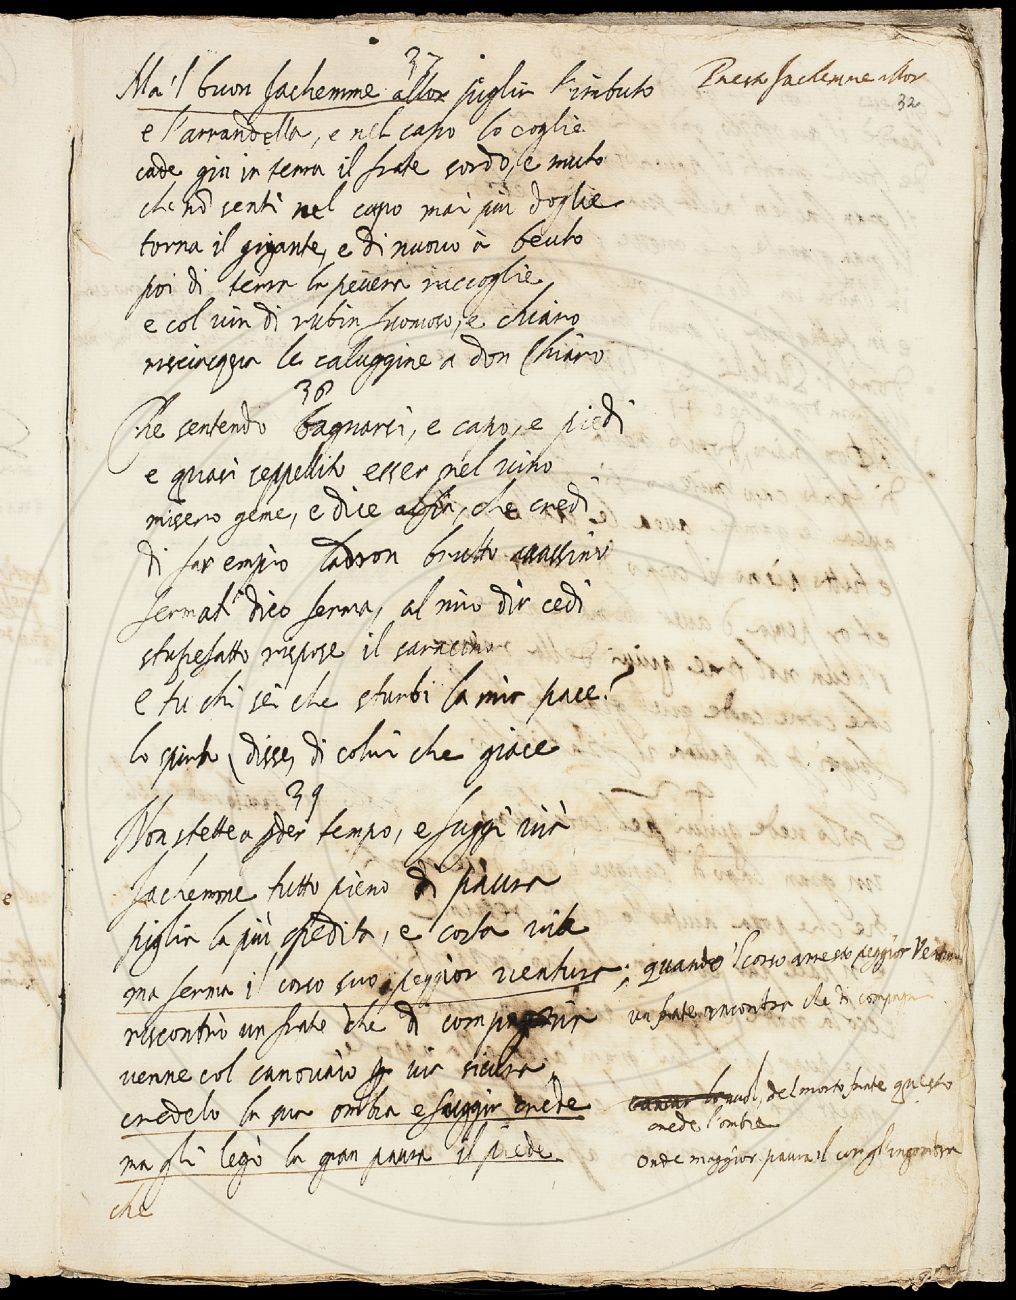 37
Ma 'l buon Sachemme allor piglia l'imbuto
e l'arrandella, e nel capo lo coglie
cade giù in terra il frate sordo, e muto
che nō sentì nel capo mai più doglie
torna il gigante, e di nuovo à beuto
poi di terra la pevera raccoglie
e col vin di rubin fumoso, e chiaro
risciacqua le caluggine a don Chiaro
38
Che sentendo bagnarsi, e capo, e piedi
e quasi seppellito esser nel vino
misero geme, e dice che credi
di far empio ladron brutto assassino
fermati dico ferma, al mio dir cedi
stupefatto rispose il saracino
e tu chi sei che sturbi la mia pace?
lo spirto (disse) di colui che giace
39
Non stette a tempo, e fuggì via
Sachemme tutto pieno di paura
piglia la più spedita, e corta via
ma ferma il corso suo peggior ventura
riscontrò un frate che di compagnia
venne col canovaio p via sicura
credelo la sua ombra e fuggir crede
ma gli legò la gran paura il piede
che
Sachemme allor
32
quando 'l corso arresta peggior
un frate rincontra che di compagn
del morto frate questo
crede l'ombra
Onde maggior paura il cor gl'ingombra